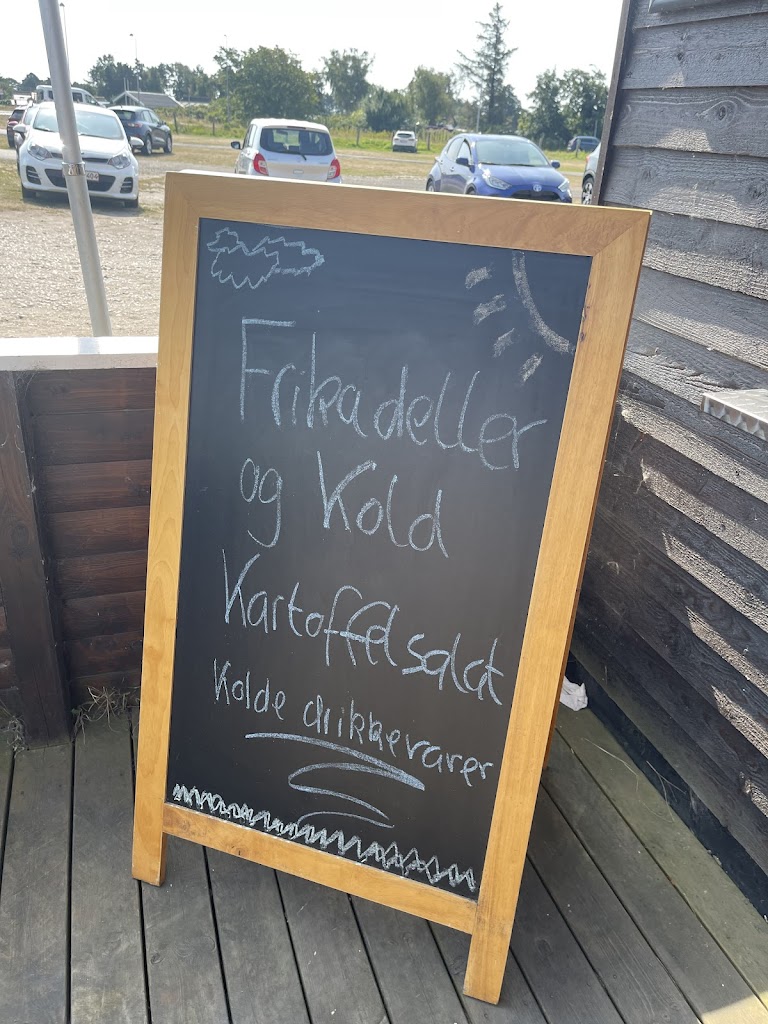 Frikadeller
og Kold
Kartoffelsalat
Kolde drikkevarer